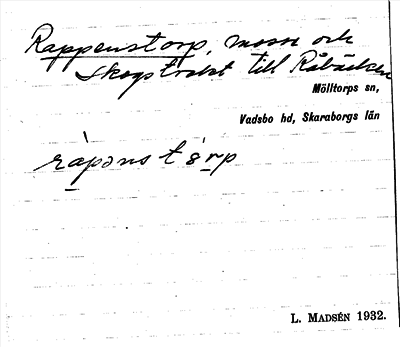 Rappenstorp, mosse och
skogstrakt till Råbäcken
Mölltorps sn,
Vadsbo hd, Skaraborgs län
L. MADSÉN 1932.